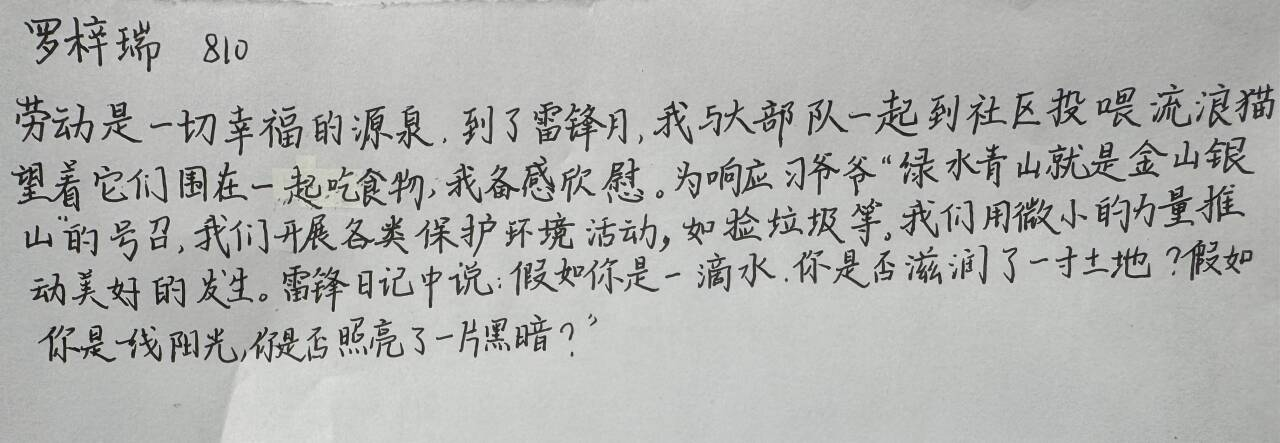 罗梓瑞 810
劳动是一切幸福的源泉,到了雷锋月,我与大部队一起到社区投喂流浪猫
望着它们围在一起吃食物,我备感欣慰。为响应习爷爷“绿水青山就是金山银
山”的号召,我们开展各类保护环境活动,如捡垃圾等。我们用微小的力量推
动美好的发生。雷锋日记中说:假如你是一滴水.你是否滋润了一寸土地?假如
你是一线阳光,你是否照亮了一片黑暗?”